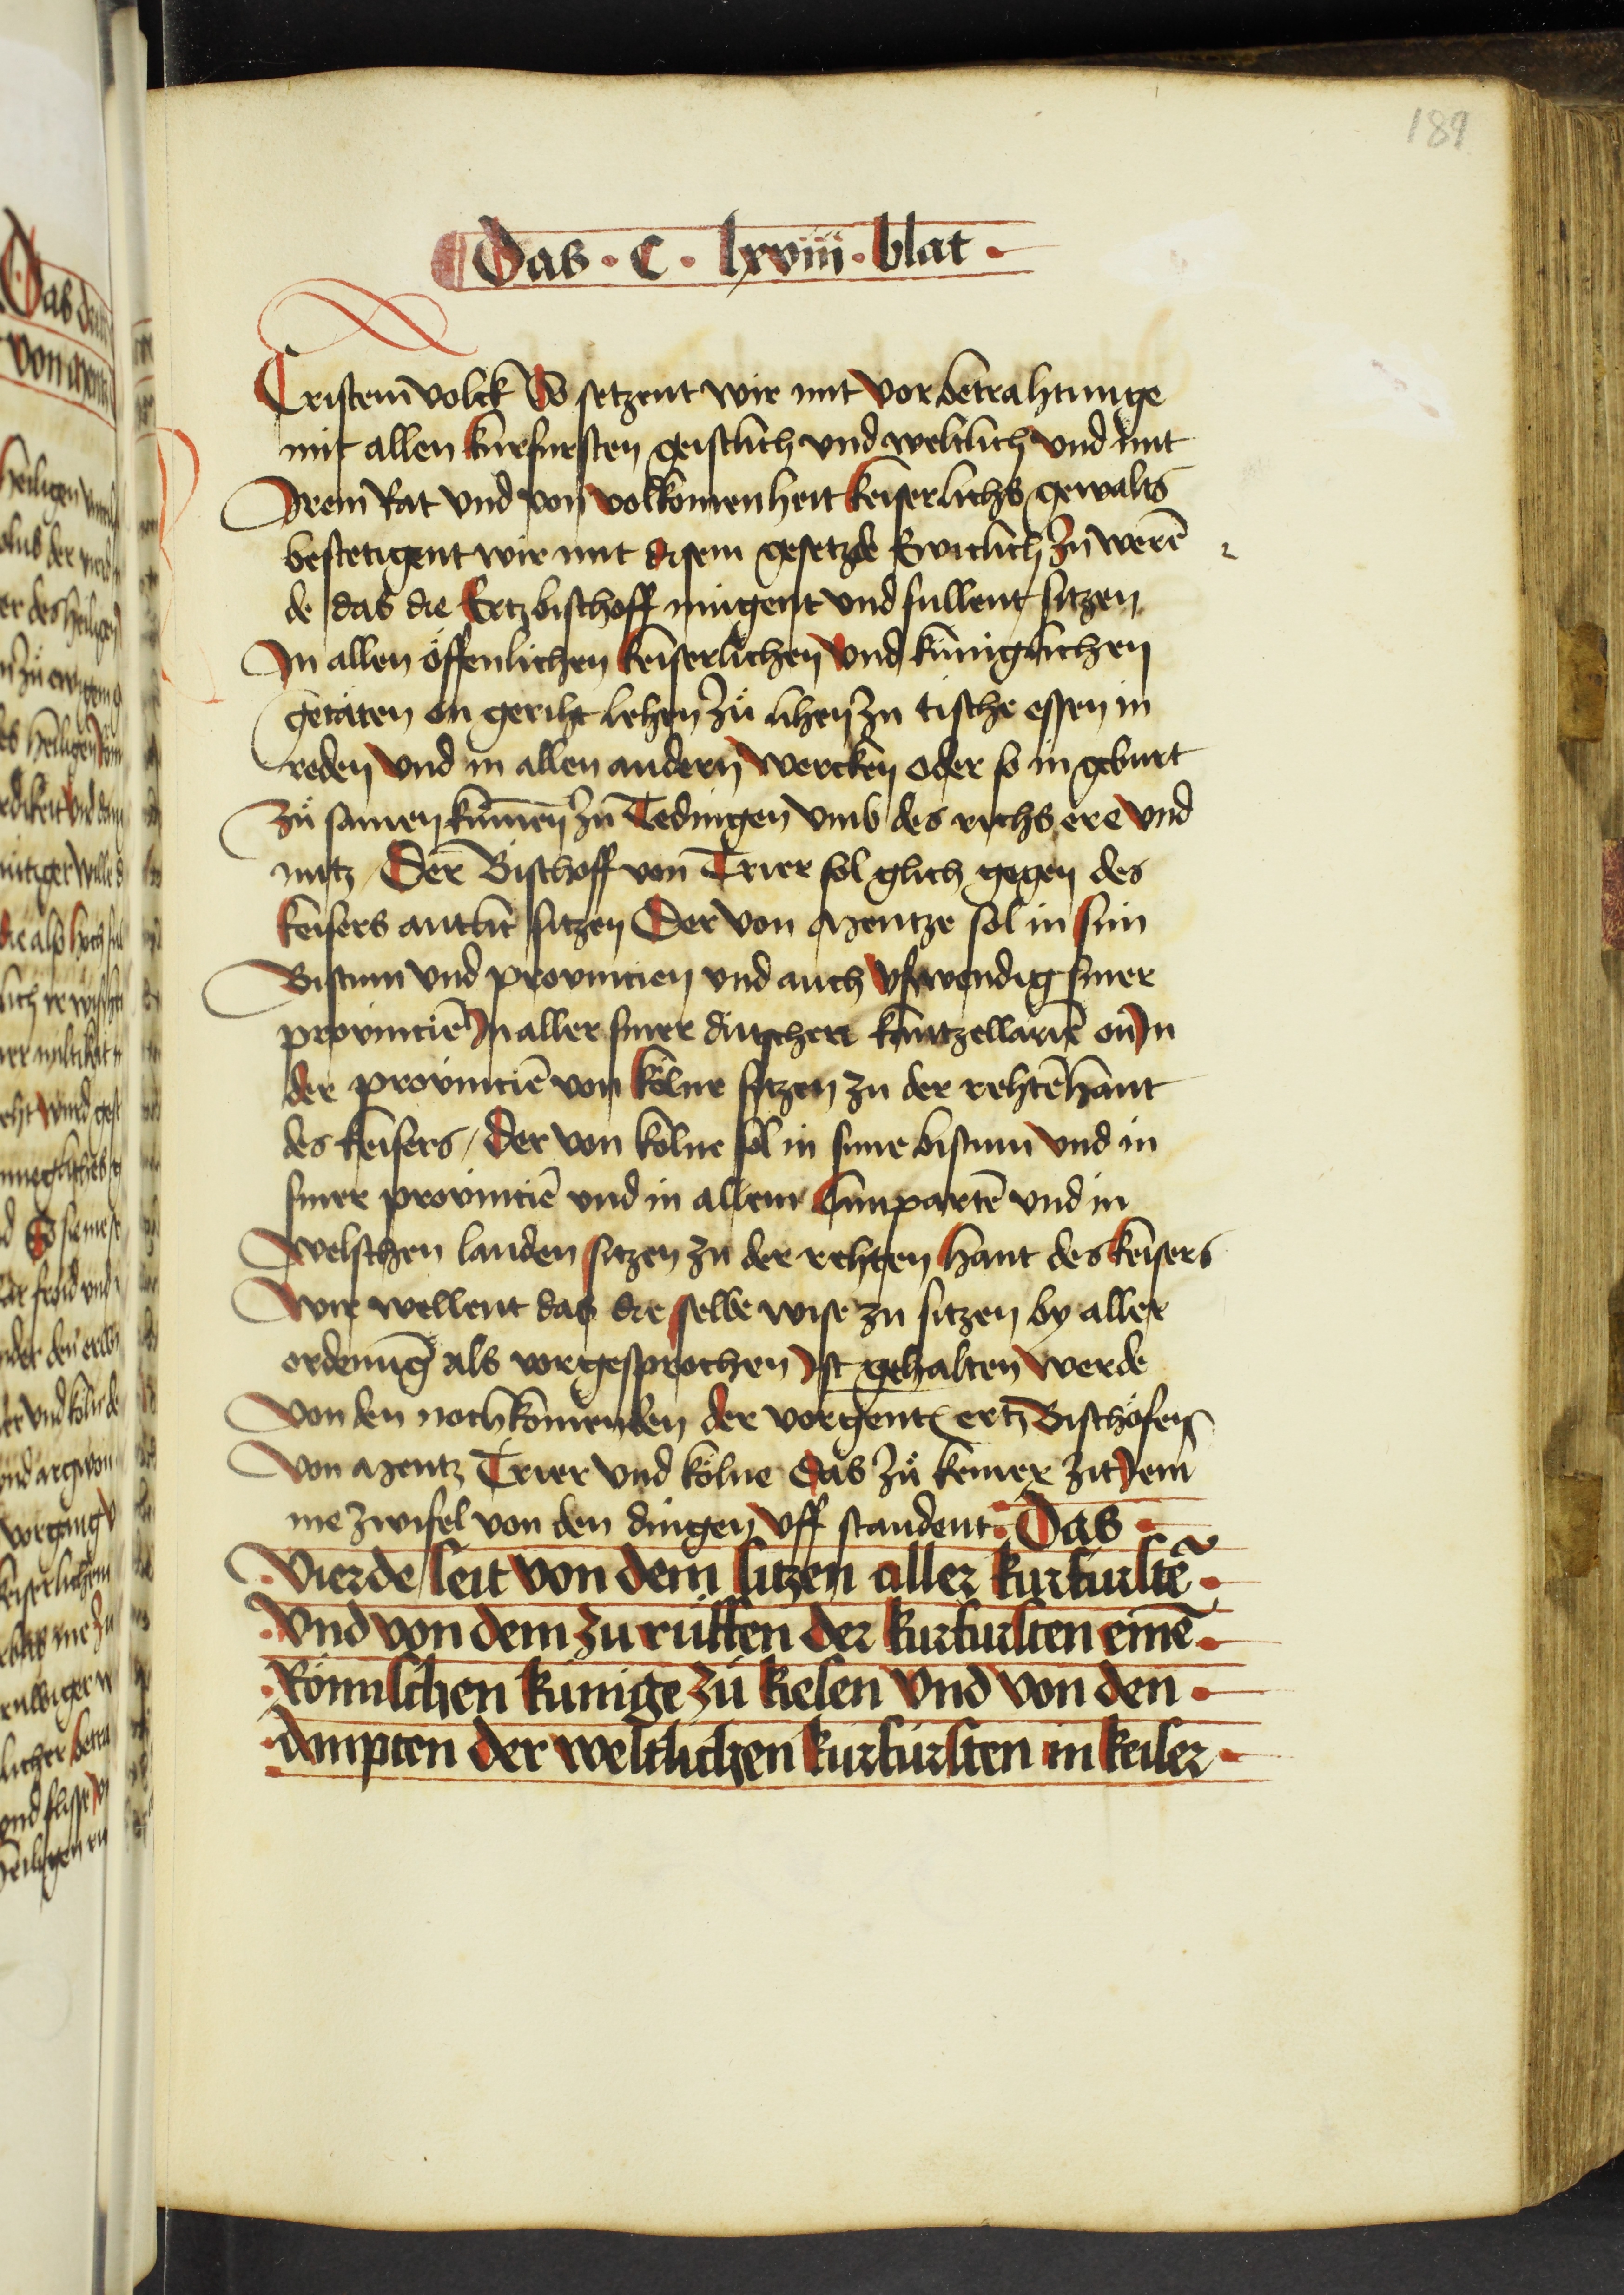 189
Das · C · lxviii · blat ·
Cristem volck So setzent wir mit vor betrahtunge
mit allen kurfursten geistlich vnd weltlich vnd mit
Irem Rat vnd von volkomenheit keiserlichs gewalts
bestetigent wir mit disem gesetzde Ewiclich zu werē
de das die Ertzbischoff mugent vnd sullent sitzen
In allen öffenlichen keiserlichen vnd küniglichen
getäten on geriht lehen zů lihen zu tische essen in
reden vnd in allen andern wercken oder so in geburt
zů samen kummen zu Tedingen vmb des richs ere vnd
nutz / Der Bischoff von Trier sol glich gegen des
keisers antlit sitzen Der von Mentze sol in sim
Bistum vnd provincien vnd auch vsswendig siner
provinciē In aller siner dütscher kantzellariē on In
der provinciē von Kölne sitzen zu der rehtē hant
des keisers / Der von kölne sol in sime bistum vnd in
siner provinciē vnd in allem Lumpartē vnd in
welschen landen sitzen zu der rehten hant des keisers
Wir wellent das die selbe wise zu sitzen by aller
ordenūg als vorgesprochen Ist gehalten werde
von den nochkomenden der vorgent ertz Bischöfen
von Mentz Trier vnd kölne das zů keiner zit Jem
me zwifel von den dingen vff standent · Das
· vierde seit von dem sitzen aller kurfurstē ·
· vnd von dem zu rüffen der kurfursten einē ·
· Römischen künige zů kiesen vnd von den ·
· ampten der weltlichen kurfürsten in keiser ·